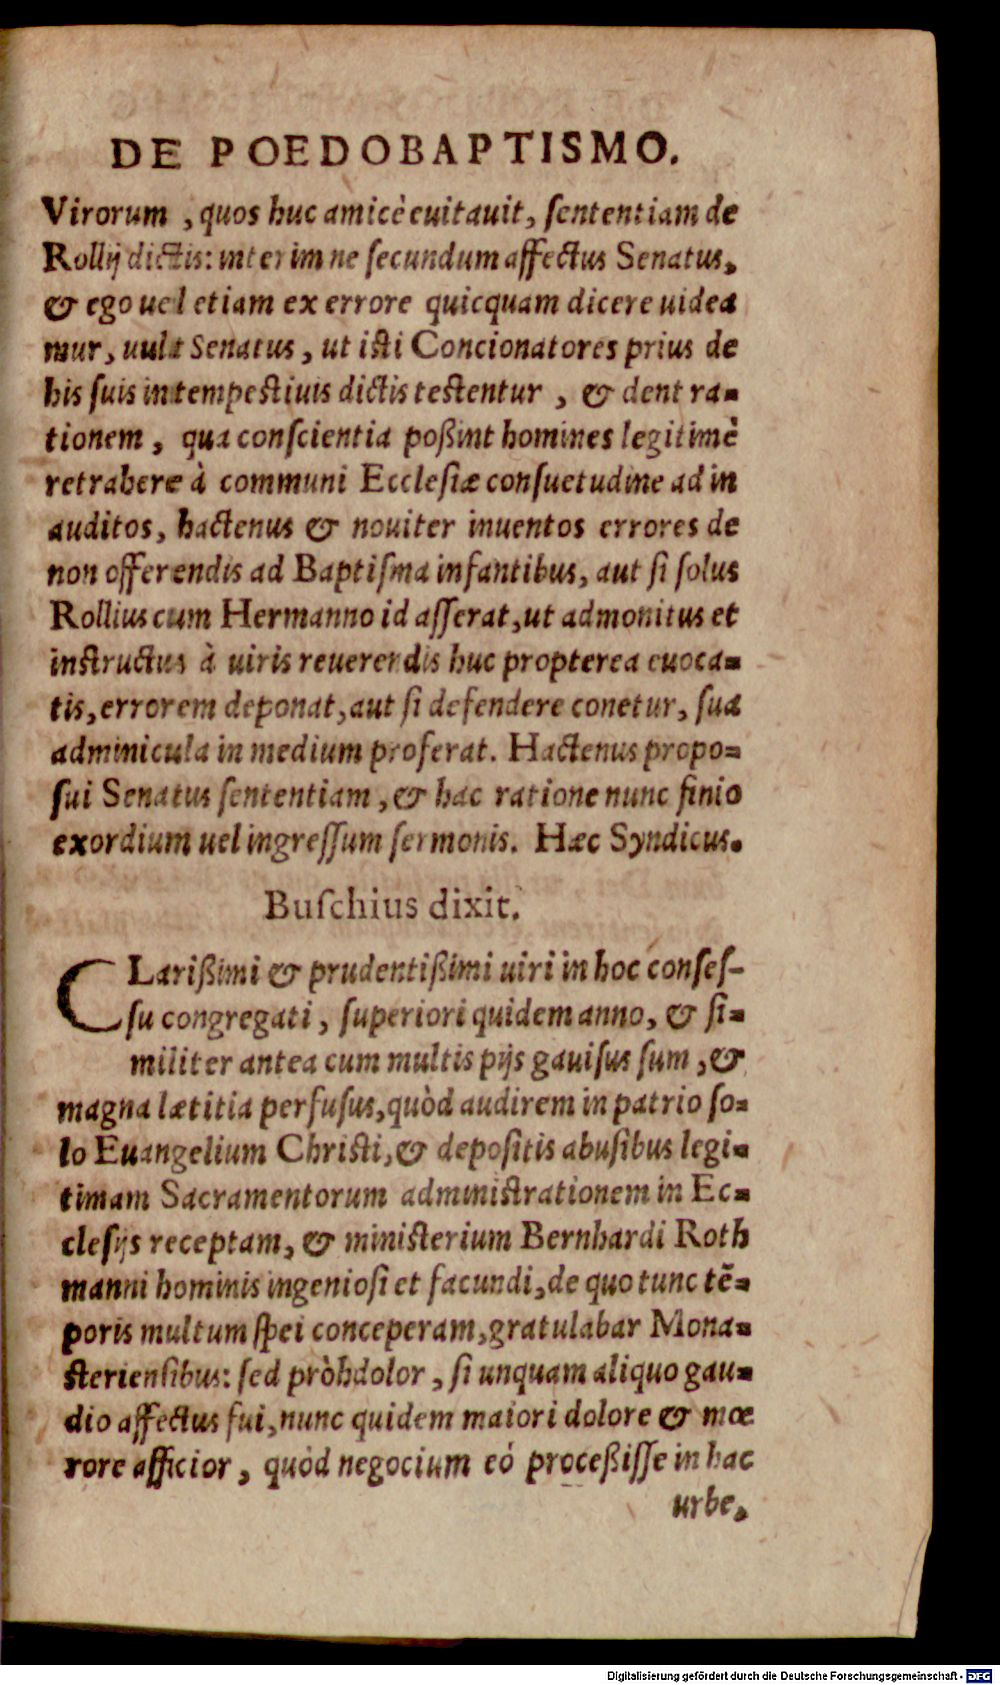 DE POEDOBAPTISMO.
Virorum , quos huc amicè euitauit, sententiam de
Rollij dictis: interim ne secundum affectus Senatus,
& ego uel etiam ex errore quicquam dicere uidea
mur, uult Senatus, ut isti Concionatores prius de
his suis intempestiuis dictis testentur , & dent ra-
tionem, qua conscientia poßint homines legitimè
retrahere à communi Ecclesiæ consuetudine ad in
auditos, hactenus & nouiter inuentos errores de
non offerendis ad Baptisma infantibus, aut si solus
Rollius cum Hermanno id asserat, ut admonitus et
instructus à uiris reuerendis huc propterea euoca-
tis, errorem deponat, aut si defendere conetur, sua
adminicula in medium proferat. Hactenus propo-
sui Senatus sententiam, & hac ratione nunc finio
exordium uel ingressum sermonis. Hæc Syndicus.
Buschius dixit.
CLarißimi & prudentißimi uiri in hoc conses-
su congregati, superiori quidem anno, & si-
militer antea cum multis pijs gauisus sum, &
magna lætitia perfusus, quòd audirem in patrio so-
lo Euangelium Christi, & depositis abusibus legi-
timam Sacramentorum administrationem in Ec-
clesijs receptam, & ministerium Bernhardi Roth
manni hominis ingeniosi et facundi, de quo tunc tē-
poris multum spei conceperam, gratulabar Mona-
steriensibus: sed pròhdolor, si unquam aliquo gau-
dio affectus fui, nunc quidem maiori dolore & mœ
rore afficior, quòd negocium eó proceßisse in hac
urbe,
Digitalisierung gefördert durch die Deutsche Forschungsgemeinschaft - DFG